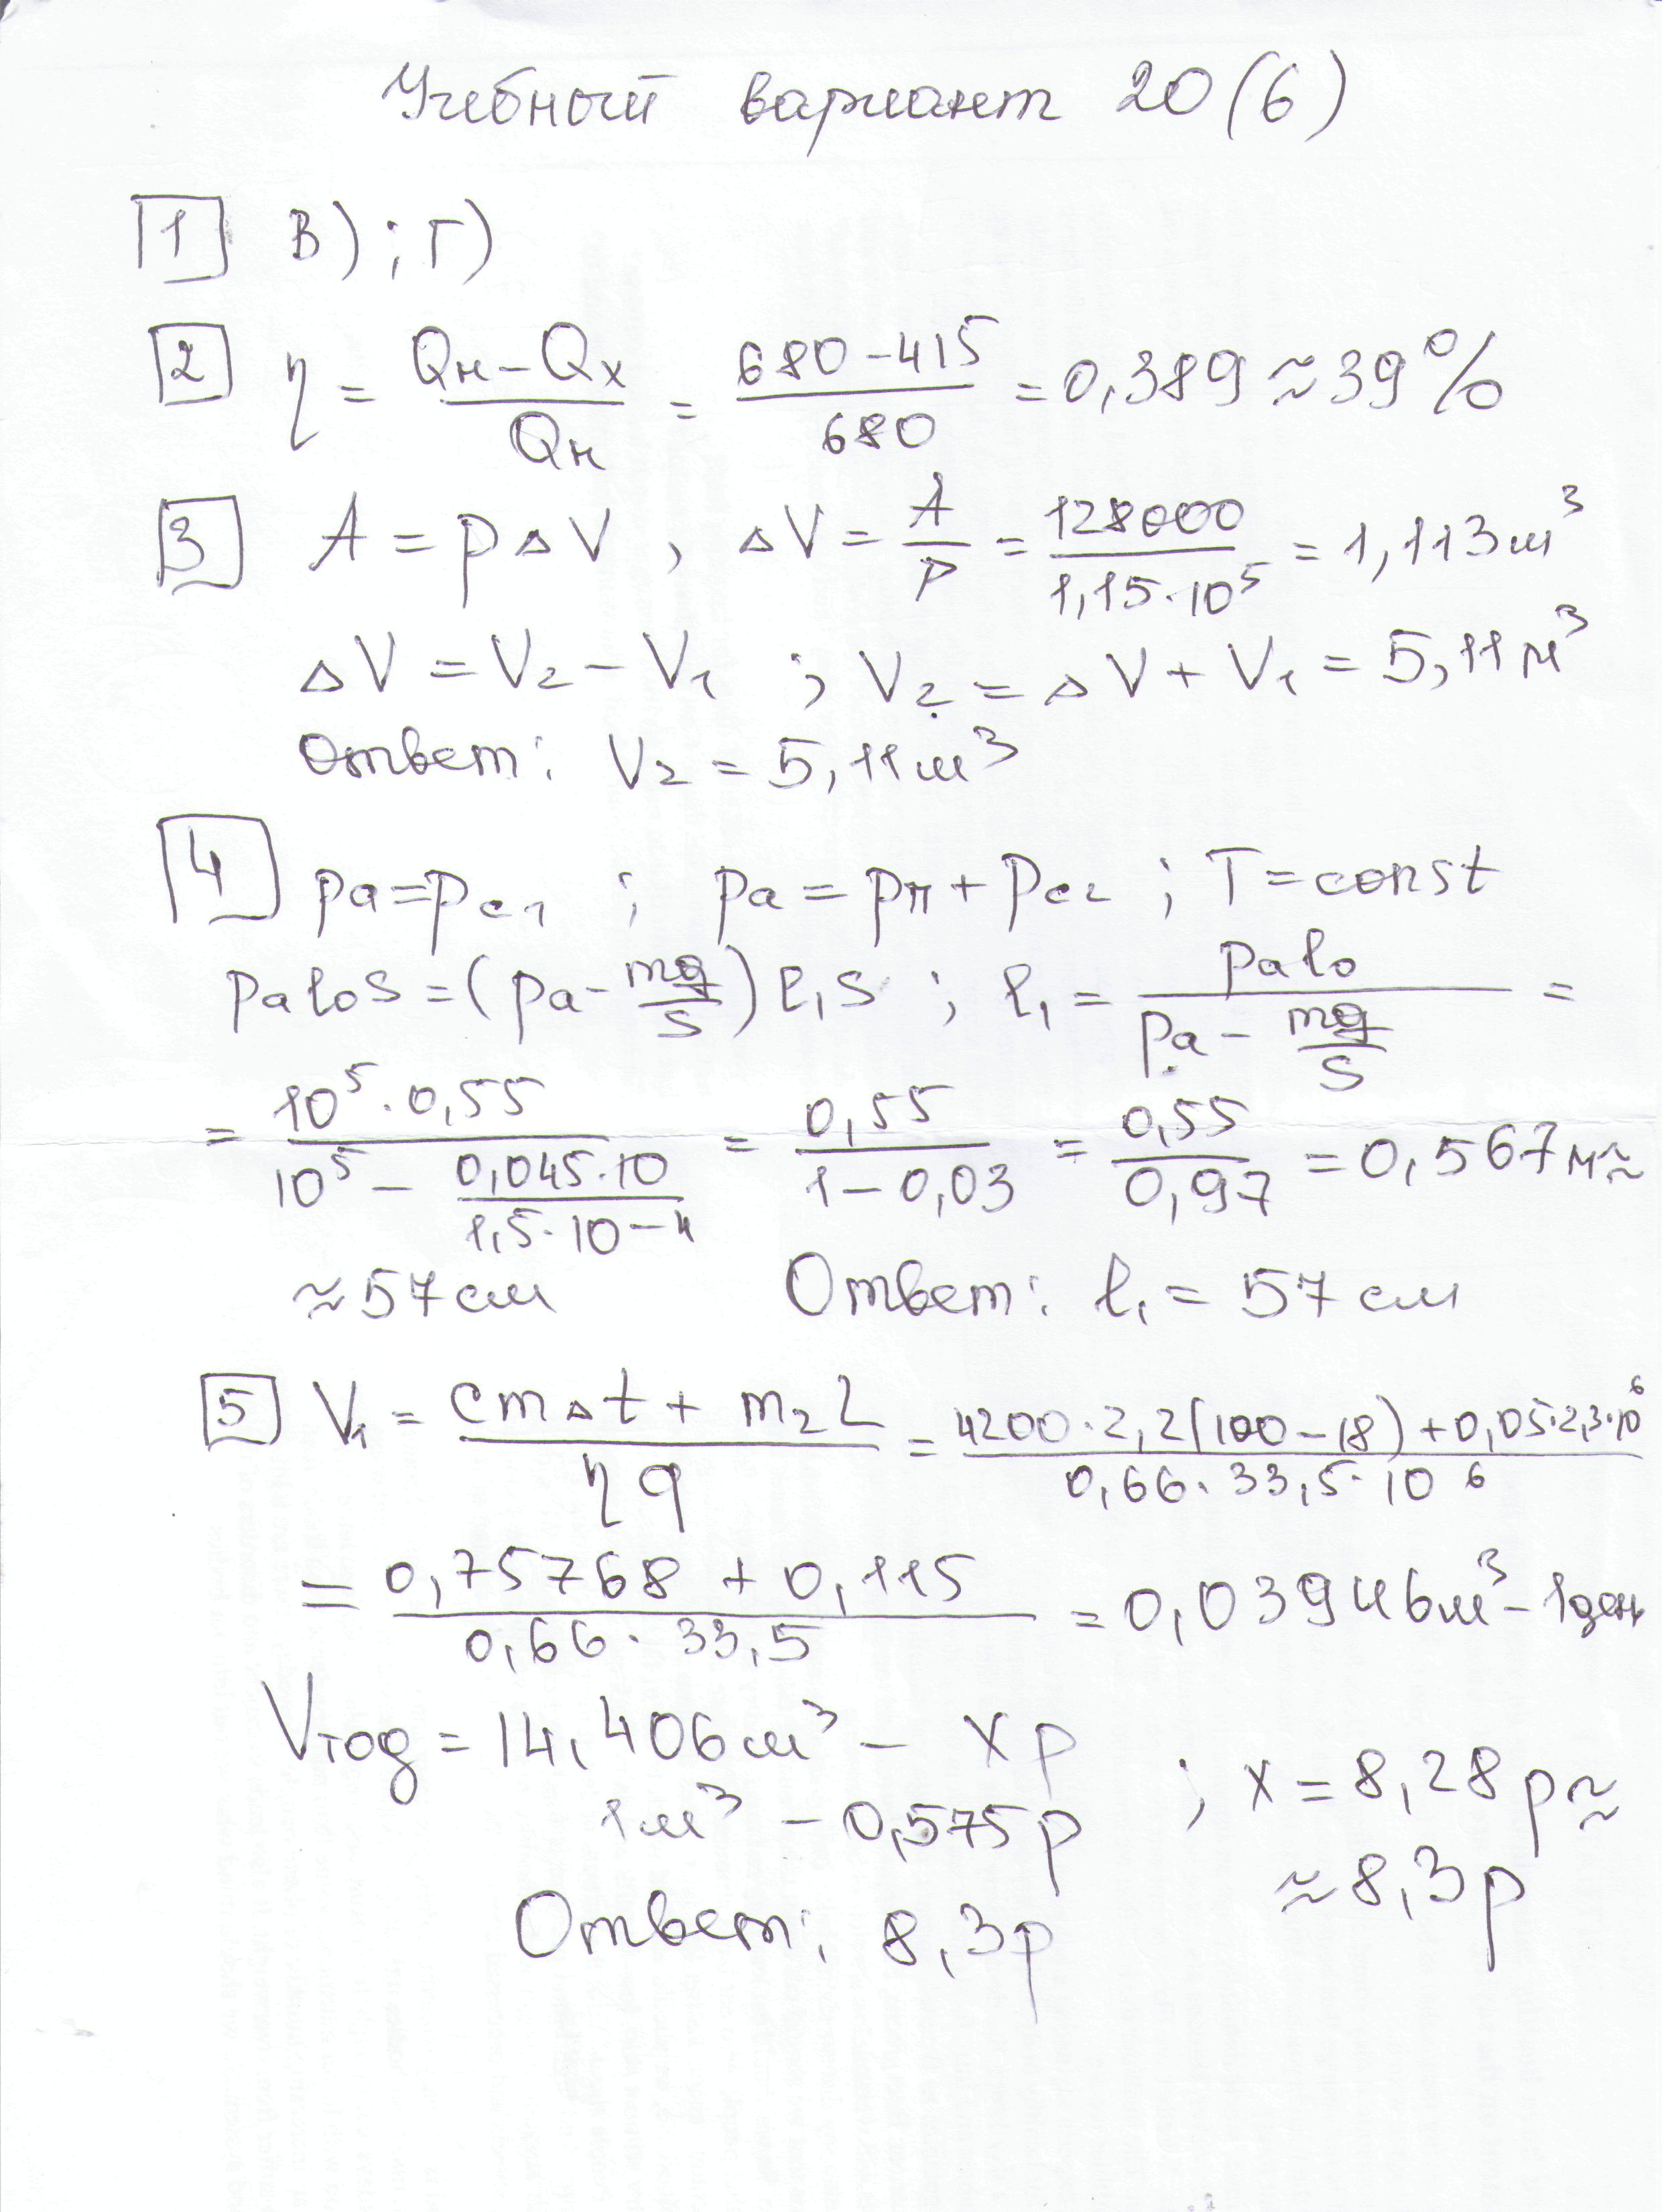 Учебный вариант 20(6)
1 В) ; Г)
2 η = (Qн – Qх)/Qн = (680 – 415)/680 = 0,389 ≈ 39%
3 A = pΔV , ΔV = A/p = 128000/(1,15·10⁵) = 1,113 м³
ΔV = V₂ – V₁ ; V₂ = ΔV + V₁ = 5,11 м³
Ответ: V₂ = 5,11 м³
4 pа = pс₁ ; pа = pп + pс₂ ; T = const
pаl₀S = (pа – mg/S) l₁S ; l₁ = pаl₀/(pа – mg/S) =
= 10⁵·0,55/(10⁵ – 0,045·10/(1,5·10–⁴)) = 0,55/(1 – 0,03) = 0,55/0,97 = 0,567 м ≈
≈ 57 см Ответ: l₁ = 57 см
5 V₁ = (cmΔt + m₂L)/(ηq) = (4200·2,2(100 – 18) + 0,05·2,3·10⁶)/(0,66·33,5·10⁶)
= (0,75768 + 0,115)/(0,66·33,5) = 0,03946 м³ – 1 ден
Vгод = 14,406 м³ – x р
1 м³ – 0,575 р ; x = 8,28 р ≈
≈ 8,3 р
Ответ: 8,3 р